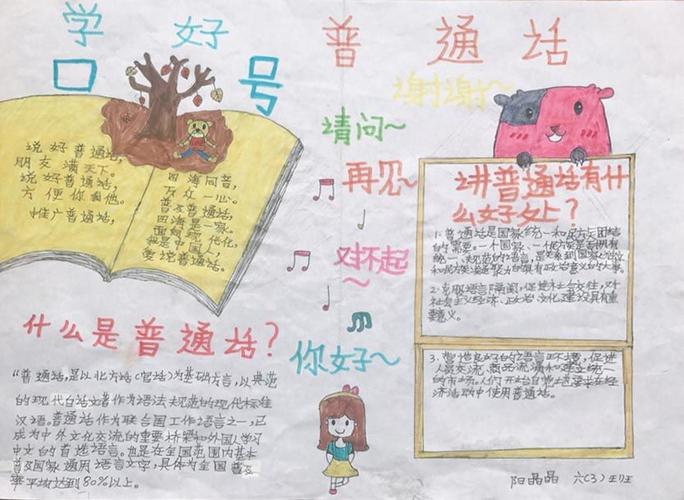 学好普通话
口号
说好普通话，
朋友满天下。
说好普通话，
方便你我他。
推广普通话，
四海同音，
万众一心。
普及普通话，
四海是一家。
面向现代化，
我是中国人，
爱说普通话。
谢谢～
请问～
再见～
对不起
～
你好～
什么是普通话？
“普通话，是以北方话（官话）为基础方言，以典范
的现代白话文著作为语法规范的现代标准
汉语。普通话作为联合国工作语言之一，已
成为中外文化交流的重要桥梁和外国人学习
中文的首选语言。也是在全国范围内基本
普及国家通用语言文字，具体为全国普
率平均达到80%以上。
讲普通话有什
么好处？
1. 普通话是国家统一和民族团结
的需要。一个国家、一个民族是否拥有
统一、规范的语言，是关系到国家
和民族凝聚力的具有政治意义的大事。
2. 克服语言隔阂，促进社会交往，对
社会主义经济、政治、文化建设具有重
要意义。
3. 营造良好的语言环境，促进
人员交流，商品流通和建立统一
的市场。人们开始自觉地要求在经
济活动中使用普通话。
阳晶晶 六（3）班